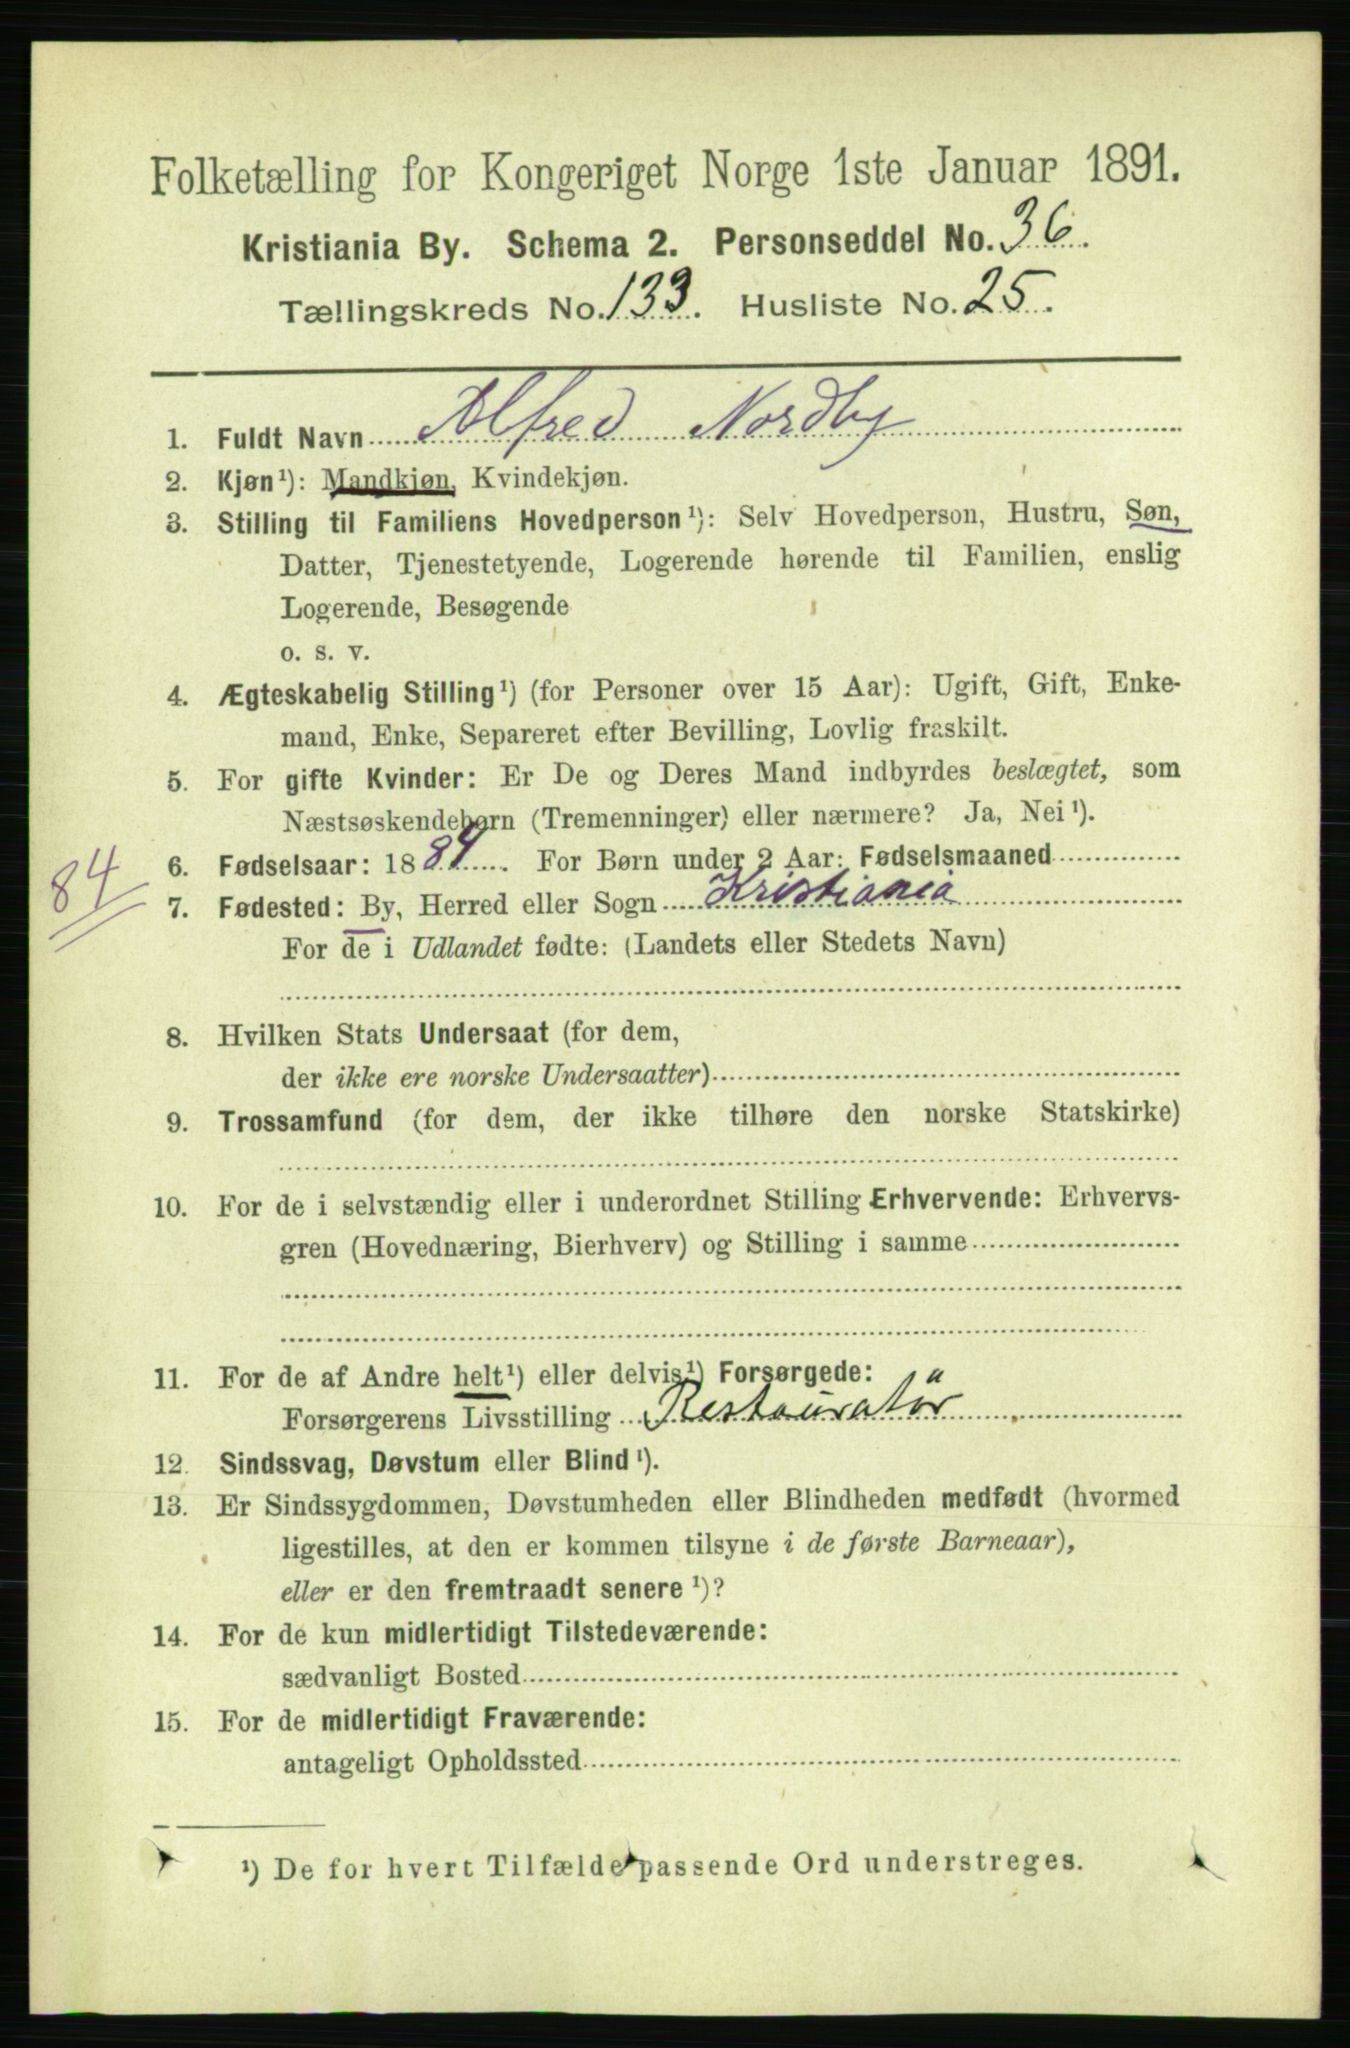 Folketælling for Kongeriget Norge 1ste Januar 1891.
Kristiania By. Schema 2. Personseddel No. 36.
Tællingskreds No. 133. Husliste No. 25.
1. Fuldt Navn Alfred Nordby
2. Kjøn¹): Mandkjøn, Kvindekjøn.
3. Stilling til Familiens Hovedperson¹): Selv Hovedperson, Hustru, Søn,
Datter, Tjenestetyende, Logerende hørende til Familien, enslig
Logerende, Besøgende
o. s. v.
4. Ægteskabelig Stilling¹) (for Personer over 15 Aar): Ugift, Gift, Enke-
mand, Enke, Separeret efter Bevilling, Lovlig fraskilt.
5. For gifte Kvinder: Er De og Deres Mand indbyrdes beslægtet, som
Næstsøskendebørn (Tremenninger) eller nærmere? Ja, Nei¹).
6. Fødselsaar: 1884. For Børn under 2 Aar: Fødselsmaaned
84
7. Fødested: By, Herred eller Sogn Kristiania
For de i Udlandet fødte: (Landets eller Stedets Navn)
8. Hvilken Stats Undersaat (for dem,
der ikke ere norske Undersaatter)
9. Trossamfund (for dem, der ikke tilhøre den norske Statskirke)
10. For de i selvstændig eller i underordnet Stilling Erhvervende: Erhvervs-
gren (Hovednæring, Bierhverv) og Stilling i samme
11. For de af Andre helt¹) eller delvis¹) Forsørgede:
Forsørgerens Livsstilling Restauratör
12. Sindssvag, Døvstum eller Blind¹).
13. Er Sindssygdommen, Døvstumheden eller Blindheden medfødt (hvormed
ligestilles, at den er kommen tilsyne i de første Barneaar),
eller er den fremtraadt senere¹)?
14. For de kun midlertidigt Tilstedeværende:
sædvanligt Bosted
15. For de midlertidigt Fraværende:
antageligt Opholdssted
¹) De for hvert Tilfælde passende Ord understreges.